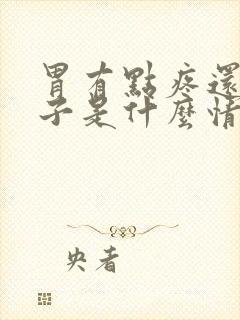 胃有點疼還
子是什麼情
央者